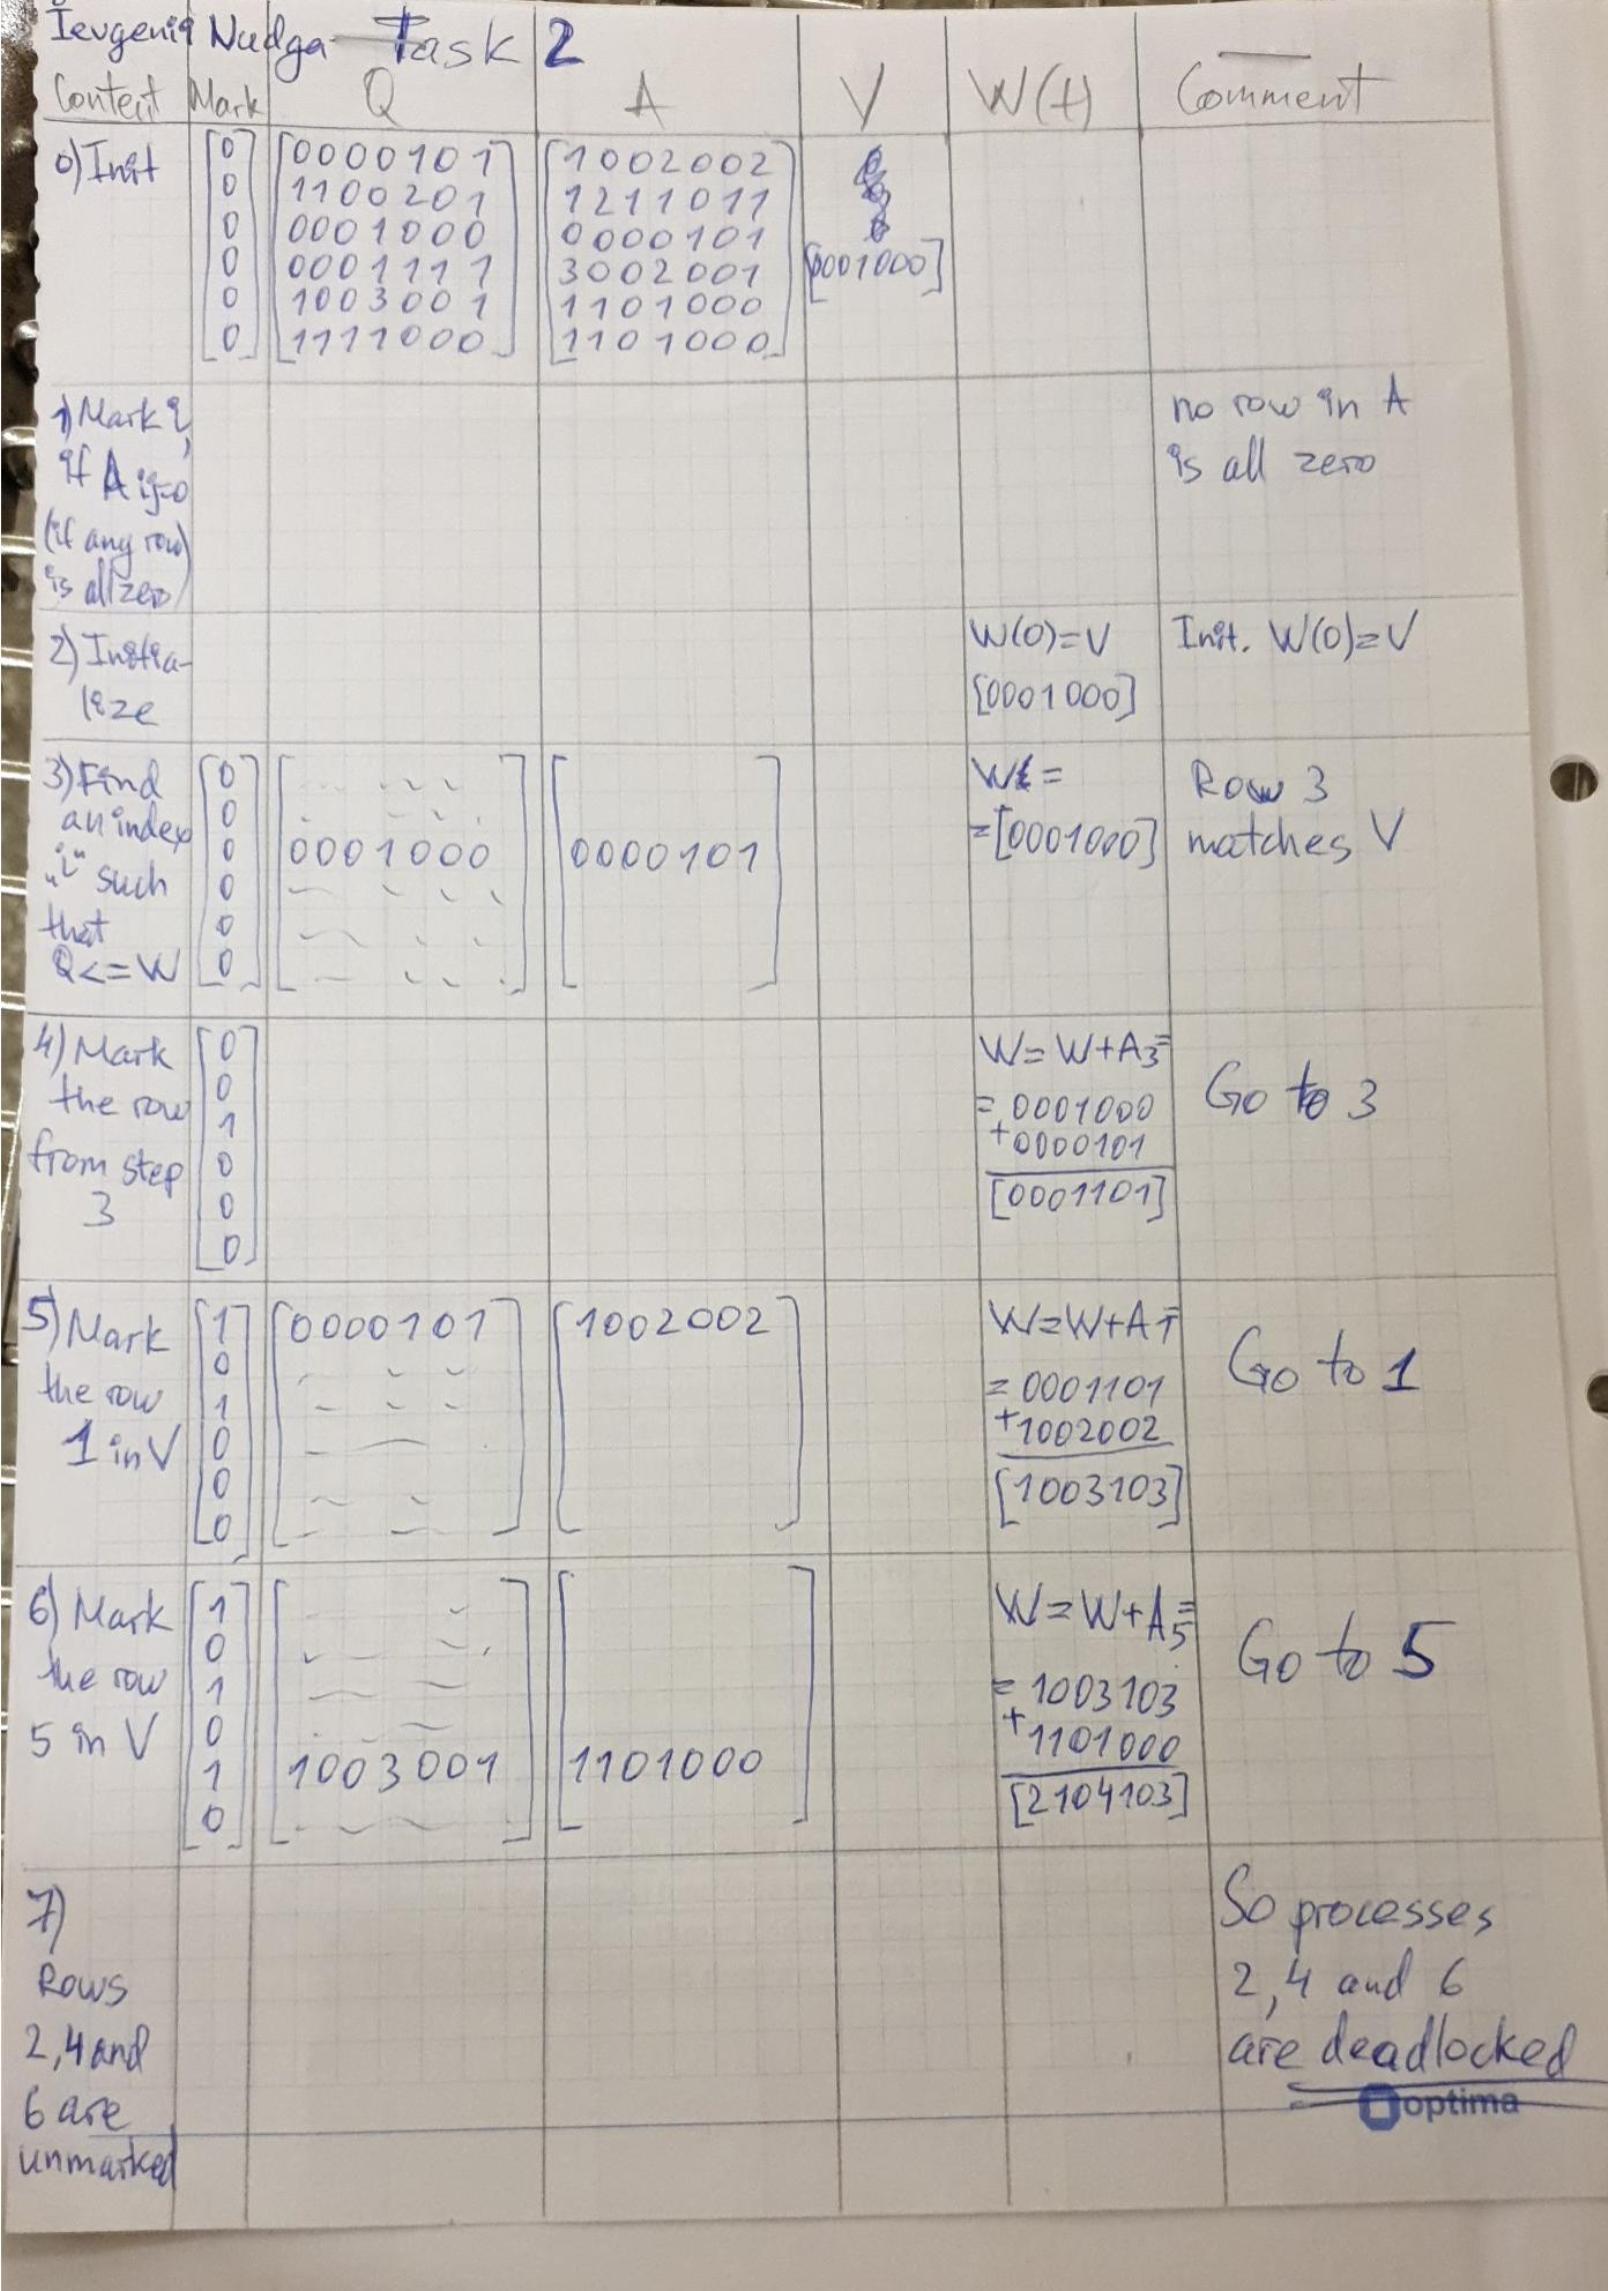 Ievgeniia Nudga Task 2
Content Mark Q A V W(t) Comment
0) Init
[0 0 0 0 0 0]
[0000101
1100201
0001000
0001111
1003001
1111000]
[1002002
1211011
0000101
3002001
1101000
1101000]
[0001000]
1) Mark i,
if Aij=0
(if any row)
is all zero
no row in A
is all zero
2) Initia-
lize
W(0)=V
[0001000]
Init. W(0)=V
3) Find
an index
"i" such
that
Q<=W
[0 0 0 0 0 0]
0001000
[0000101]
W=
=[0001000]
Row 3
matches V
4) Mark
the row
from step
3
[0 0 1 0 0 0]
W=W+A3=
=0001000
+0000101
[0001101]
Go to 3
5) Mark
the row
1 in V
[1 0 1 0 0 0]
[0000101]
[1002002]
W=W+A1=
=0001101
+1002002
[1003103]
Go to 1
6) Mark
the row
5 in V
[1 0 1 0 1 0]
[1003001]
[1101000]
W=W+A5=
=1003103
+1101000
[2104103]
Go to 5
7)
Rows
2,4 and
6 are
unmarked
So processes
2,4 and 6
are deadlocked
optima